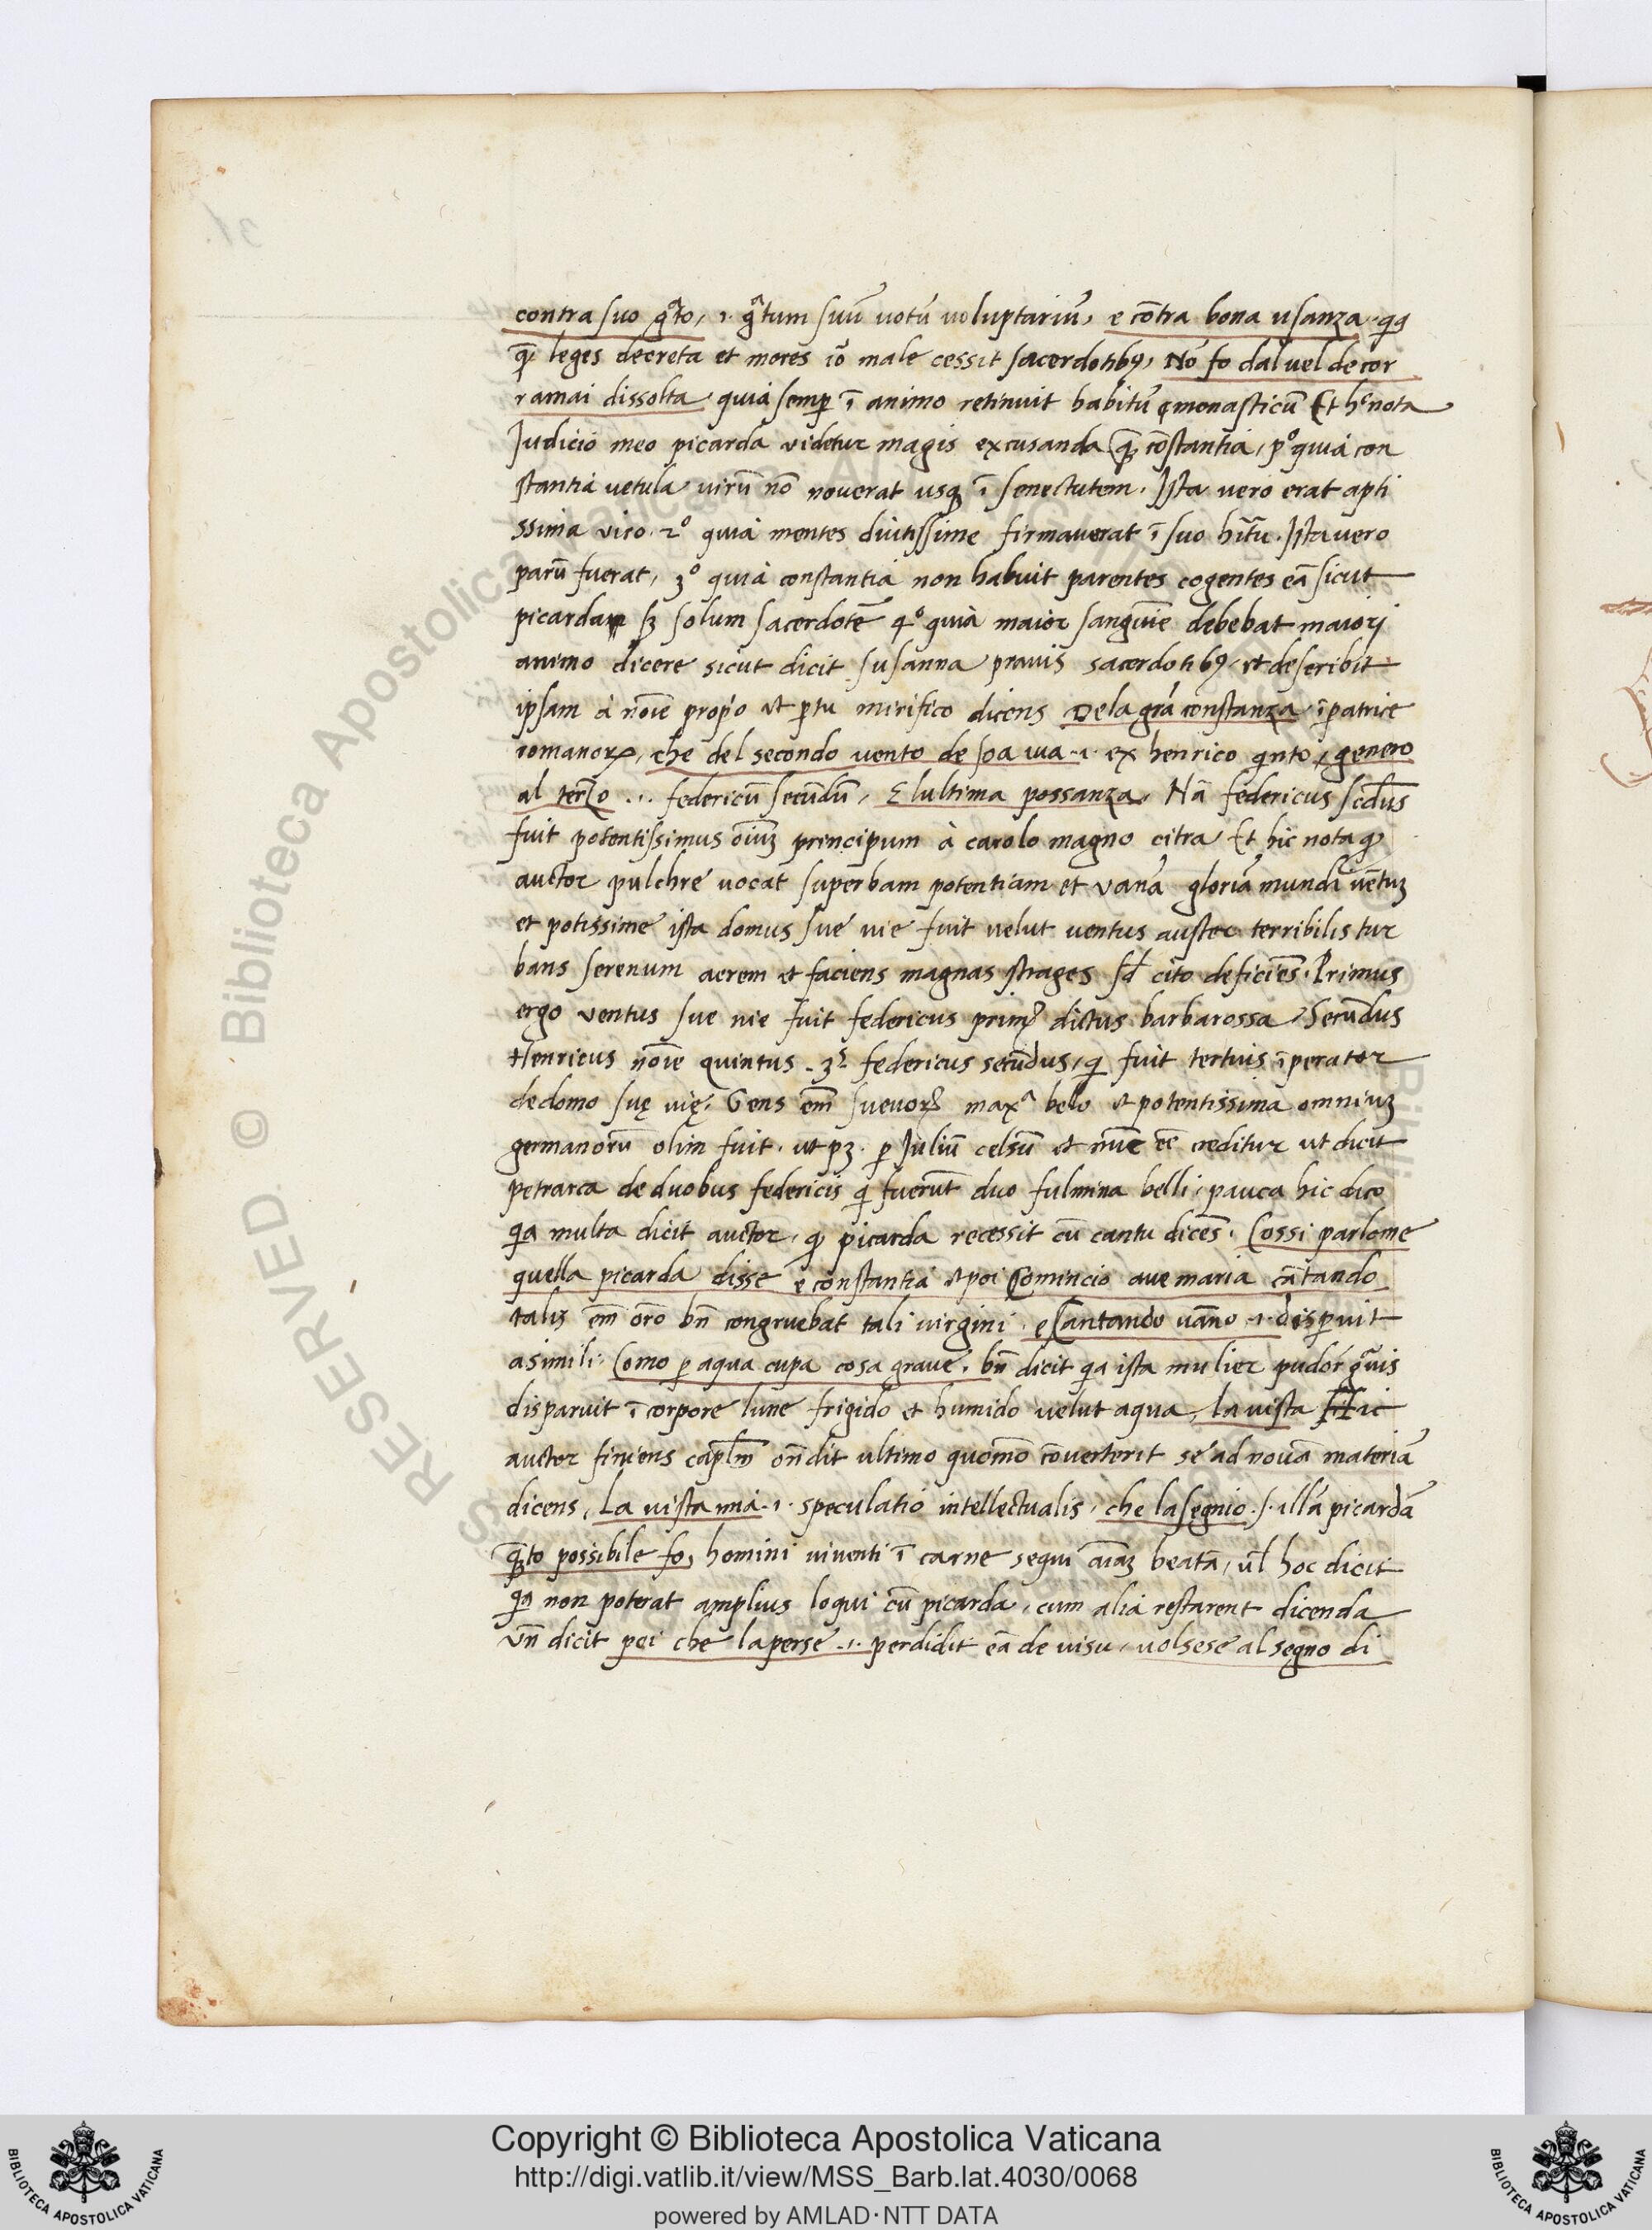 contra suo gᵃto, .i. gᵃtum suũ uotũ uoluptariũ, e cõtra bona usanza. qꝫ
leges decreta et mores iõ male cessit sacerdotibꝰ, Nõ fo dal uel de cor
ramai dissolta. quia semꝑ ĩ animo retinuit habitũ monasticũ Et hᶜ nota
Judicio meo picarda videtur magis excusanda ꝗ̃ cõstantia, pº quia con
stantia uetula virũ nõ nouerat usqꝫ ĩ senectutem. Ista vero erat apti
ssima viro. 2º quia mentes diutissime firmauerat ĩ suo hĩtu. Ista uero
parũ fuerat, 3º quia constantia non habuit parentes cogentes eã sicut
picarda sꝫ solum sacerdotẽ 4º quia maior sanguĩe debebat maiori
animo dicere sicut dicit susanna prauis sacerdotibꝰ, et describit
ipsam à nõie proprio et ꝑtu mirifico dicens Dela grã constanza, ĩpatrice
romanoꝝ, che del secondo uento de soa uia .i. ex henrico qnto, genero
al terzo .i. federicũ secũdũ, E lultima possanza, Nã federicus scdus
fuit potentissimus oĩuꝫ principum à carolo magno citra, Et hic nota ꝙ
auctor pulchre uocat superbam potentiam et vanã gloriã mundi uẽtuꝫ
et potissime ista domus sue uie fuit uelut uentus auster terribilis tur
bans serenum aerem et faciens magnas strages sꝫ cito deficiẽs. Primus
ergo ventus sue uie fuit federicus primꝰ dictus barbarossa, Secũdus
Henricus nõie quintus. 3ˢ federicus secũdus, q fuit tertuis ĩperator
de domo suę uię. Gens em̃ sueuoꝝ maxᵃ belo et potentissima omniuꝫ
germanorũ olim fuit. ut pꝫ. ꝑ Juliũ celsũ et nũc eẽ creditur ut dicit
petrarca de duobus federicis q fuerũt duo fulmina belli, pauca hic dico
qa multa dicit auctor, ꝙ picarda recessit cũ cantu dicẽs. Cossi parlome
quella picarda disse e constantia et poi Comincio aue maria cãtando
talis em̃ orõ bñ congruebat tali uirgini. e Cantando uãno .i. disꝑuit
a simili. Como ꝑ aqua cupa cosa graue. bñ dicit qa ista mulier pudor gᵃuis
disparuit ĩ corpore lune frigido et humido uelut aqua, La uista Hic
auctor finiens caplm̃ oñdit ultimo quomõ cõuerterit se ad nouã materiã
dicens, La uista mia .i. speculatio intellectualis, che la segnio .s. illã picardã
ꝗ̃to possibile fo, homini uiuenti ĩ carne sequi aĩaꝫ beatã, ul hoc dicit
qa non poterat amplius loqui cũ picarda, cum alia restarent dicenda
vñ dicit poi che la perse .i. perdidit eã de uisu, uolsese al segno di
Copyright © Biblioteca Apostolica Vaticana
http://digi.vatlib.it/view/MSS_Barb.lat.4030/0068
powered by AMLAD·NTT DATA
BIBLIOTECA APOSTOLICA VATICANA
BIBLIOTECA APOSTOLICA VATICANA